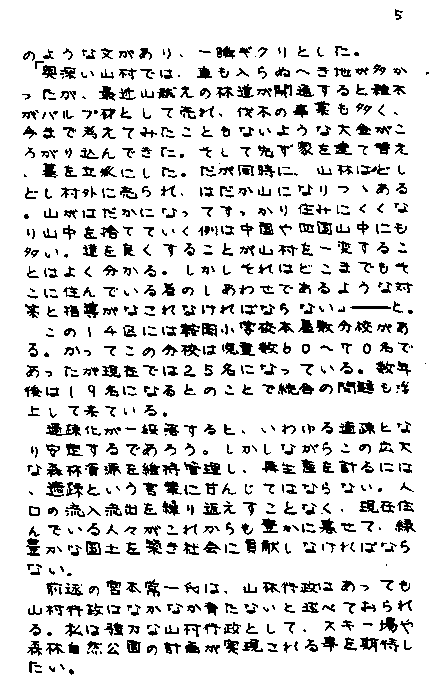 5
のような文があり、一瞬ギクリとした。
「奥深い山村では、車も入らぬへき地が多か
ったが、最近山越えの林道が開通すると雑木
がパルプ材として売れ、伐木の事業も多く、
今まで考えてみたこともないような大金がこ
ろがり込んできた。そして先ず家を建て替え
、墓を立派にした。だが同時に、山林はどし
どし村外に売られ、はだか山になりつゝある
。山がはだかになってすっかり住みにくくな
り山中を捨てていく例は中国や四国山中にも
多い。道を良くすることが山村を一変するこ
とはよく分かる。しかしそれはどこまでもそ
こに住んでいる者のしあわせであるような対
策と指導がなされなければならない」――と。
この14区には鞍岡小学校本屋敷分校があ
る。かってこの分校は児童数60〜70名で
あったが現在では25名になっている。数年
後は19名になるとのことで統合の問題も浮
上して来ている。
過疎化が一段落すると、いわゆる適疎とな
り安定するであろう。しかしながらこの広大
な森林資源を維持管理し、再生産を計るには
、適疎という言葉に甘んじてはならない。人
口の流入流出を繰り返えすことなく、現在住
んでいる人々がこれからも豊かに暮せて、緑
豊かな国土を築き社会に貢献しなければなら
ない。
前述の宮本常一氏は、山林行政はあっても
山村行政はなかなか育たないと述べておられ
る。私は強力な山村行政として、スキー場や
森林自然公園の計画が実現される事を期待し
たい。